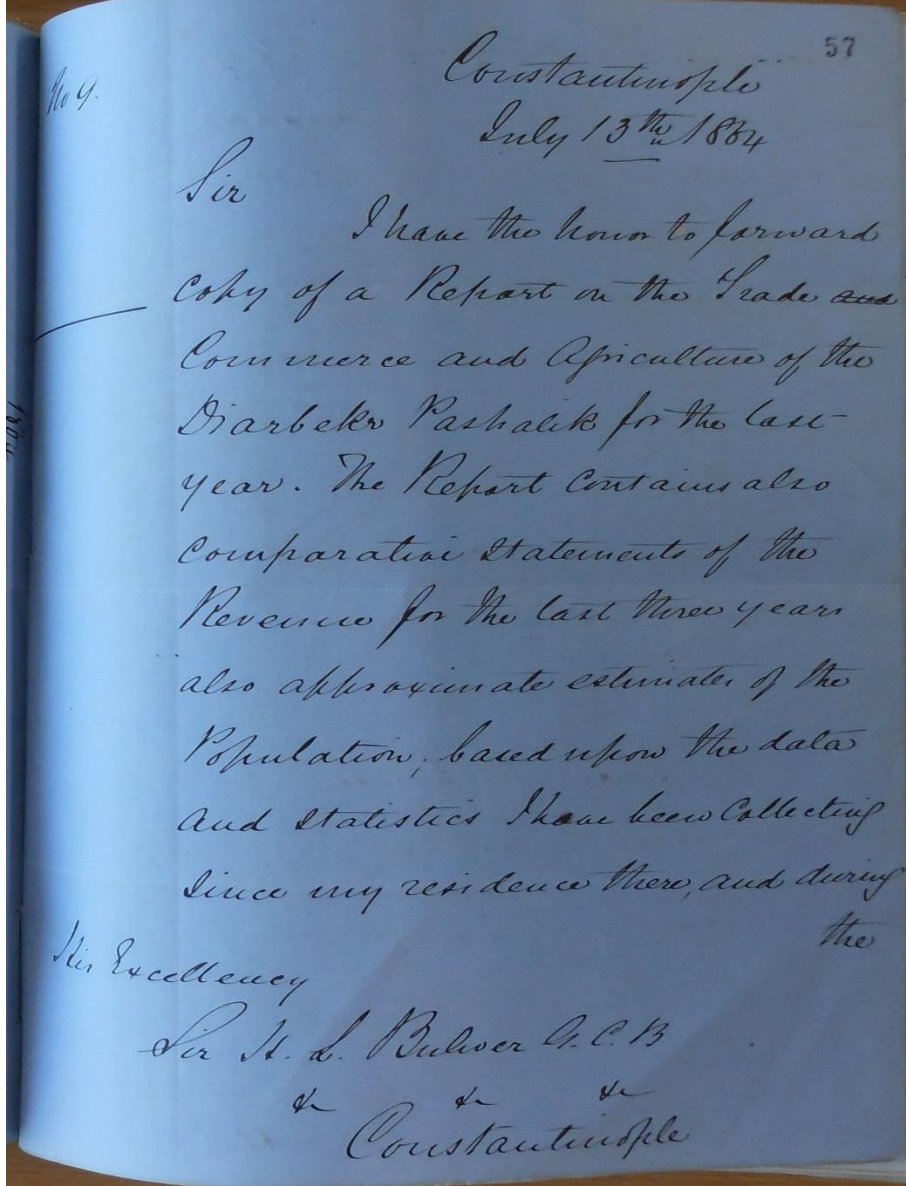 57
No 9.
Constantinople
July 13th 1864
Sir
I have the honor to forward
copy of a Report on the Trade and
Commerce and Agriculture of the
Diarbekr Pashalik for the last
year. The Report contains also
comparative statements of the
Revenue for the last three years
also approximate estimates of the
Population, based upon the data
and statistics I have been collecting
since my residence there, and during
the
His Excellency
Sir H. L. Bulwer G.C.B
&c &c &c
Constantinople